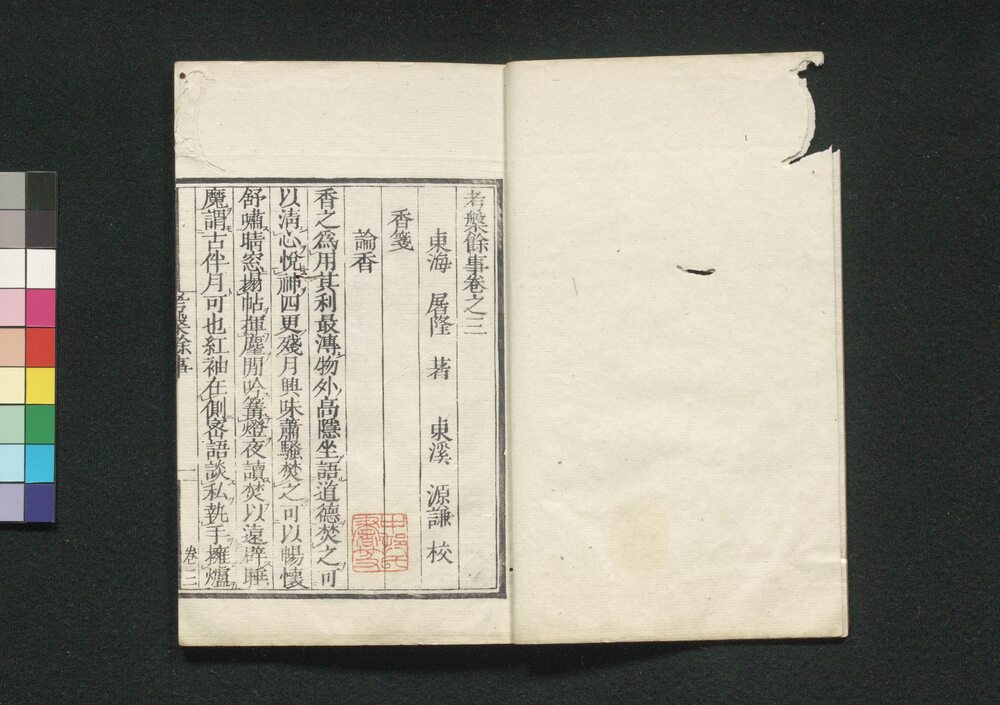 考槃餘事卷之三
東海 屠隆 著 東溪 源謙 校
香箋
論香
香之爲用其利最溥物外高隱坐語道德焚之可
以清心悅神四更殘月興味蕭騷焚之可以暢懷
舒嘯晴窓搨帖揮麈閒吟篝燈夜讀焚以遠辟睡
魔謂古伴月可也紅袖在側密語談私執手擁爐
考槃餘事
一
卷三